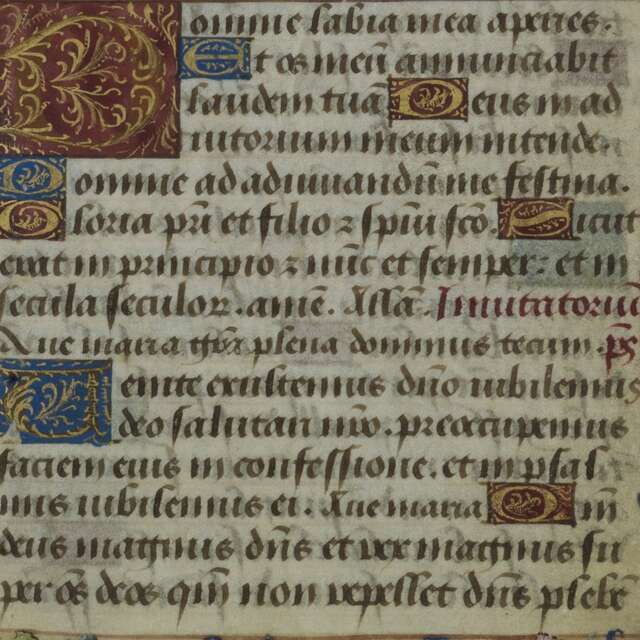 Domine labia mea aperies.
Et os meū annunciabit
laudem tuā Deus in ad
iutorium meum intende.
Domine ad adiuuandū me festina.
Gloria pr̄i et filio ⁊ spū̄i sc̄o. Sicut
erat in principio ⁊ nūc et semper: et in
secula seculoꝝ. amē. All̄a. Inuitatoriū
Aue maria gr̄a plena dominus tecum. p̄s
Venite exultemus dn̄o iubilemus
deo salutari nr̄o. preoccupemus
faciem eius in confessione. et in psal
mis iubilemus ei. Aue maria Qm̄
deus magnus dn̄s et rex magnus su
per oēs deos qm̄ non repellet dn̄s plebē